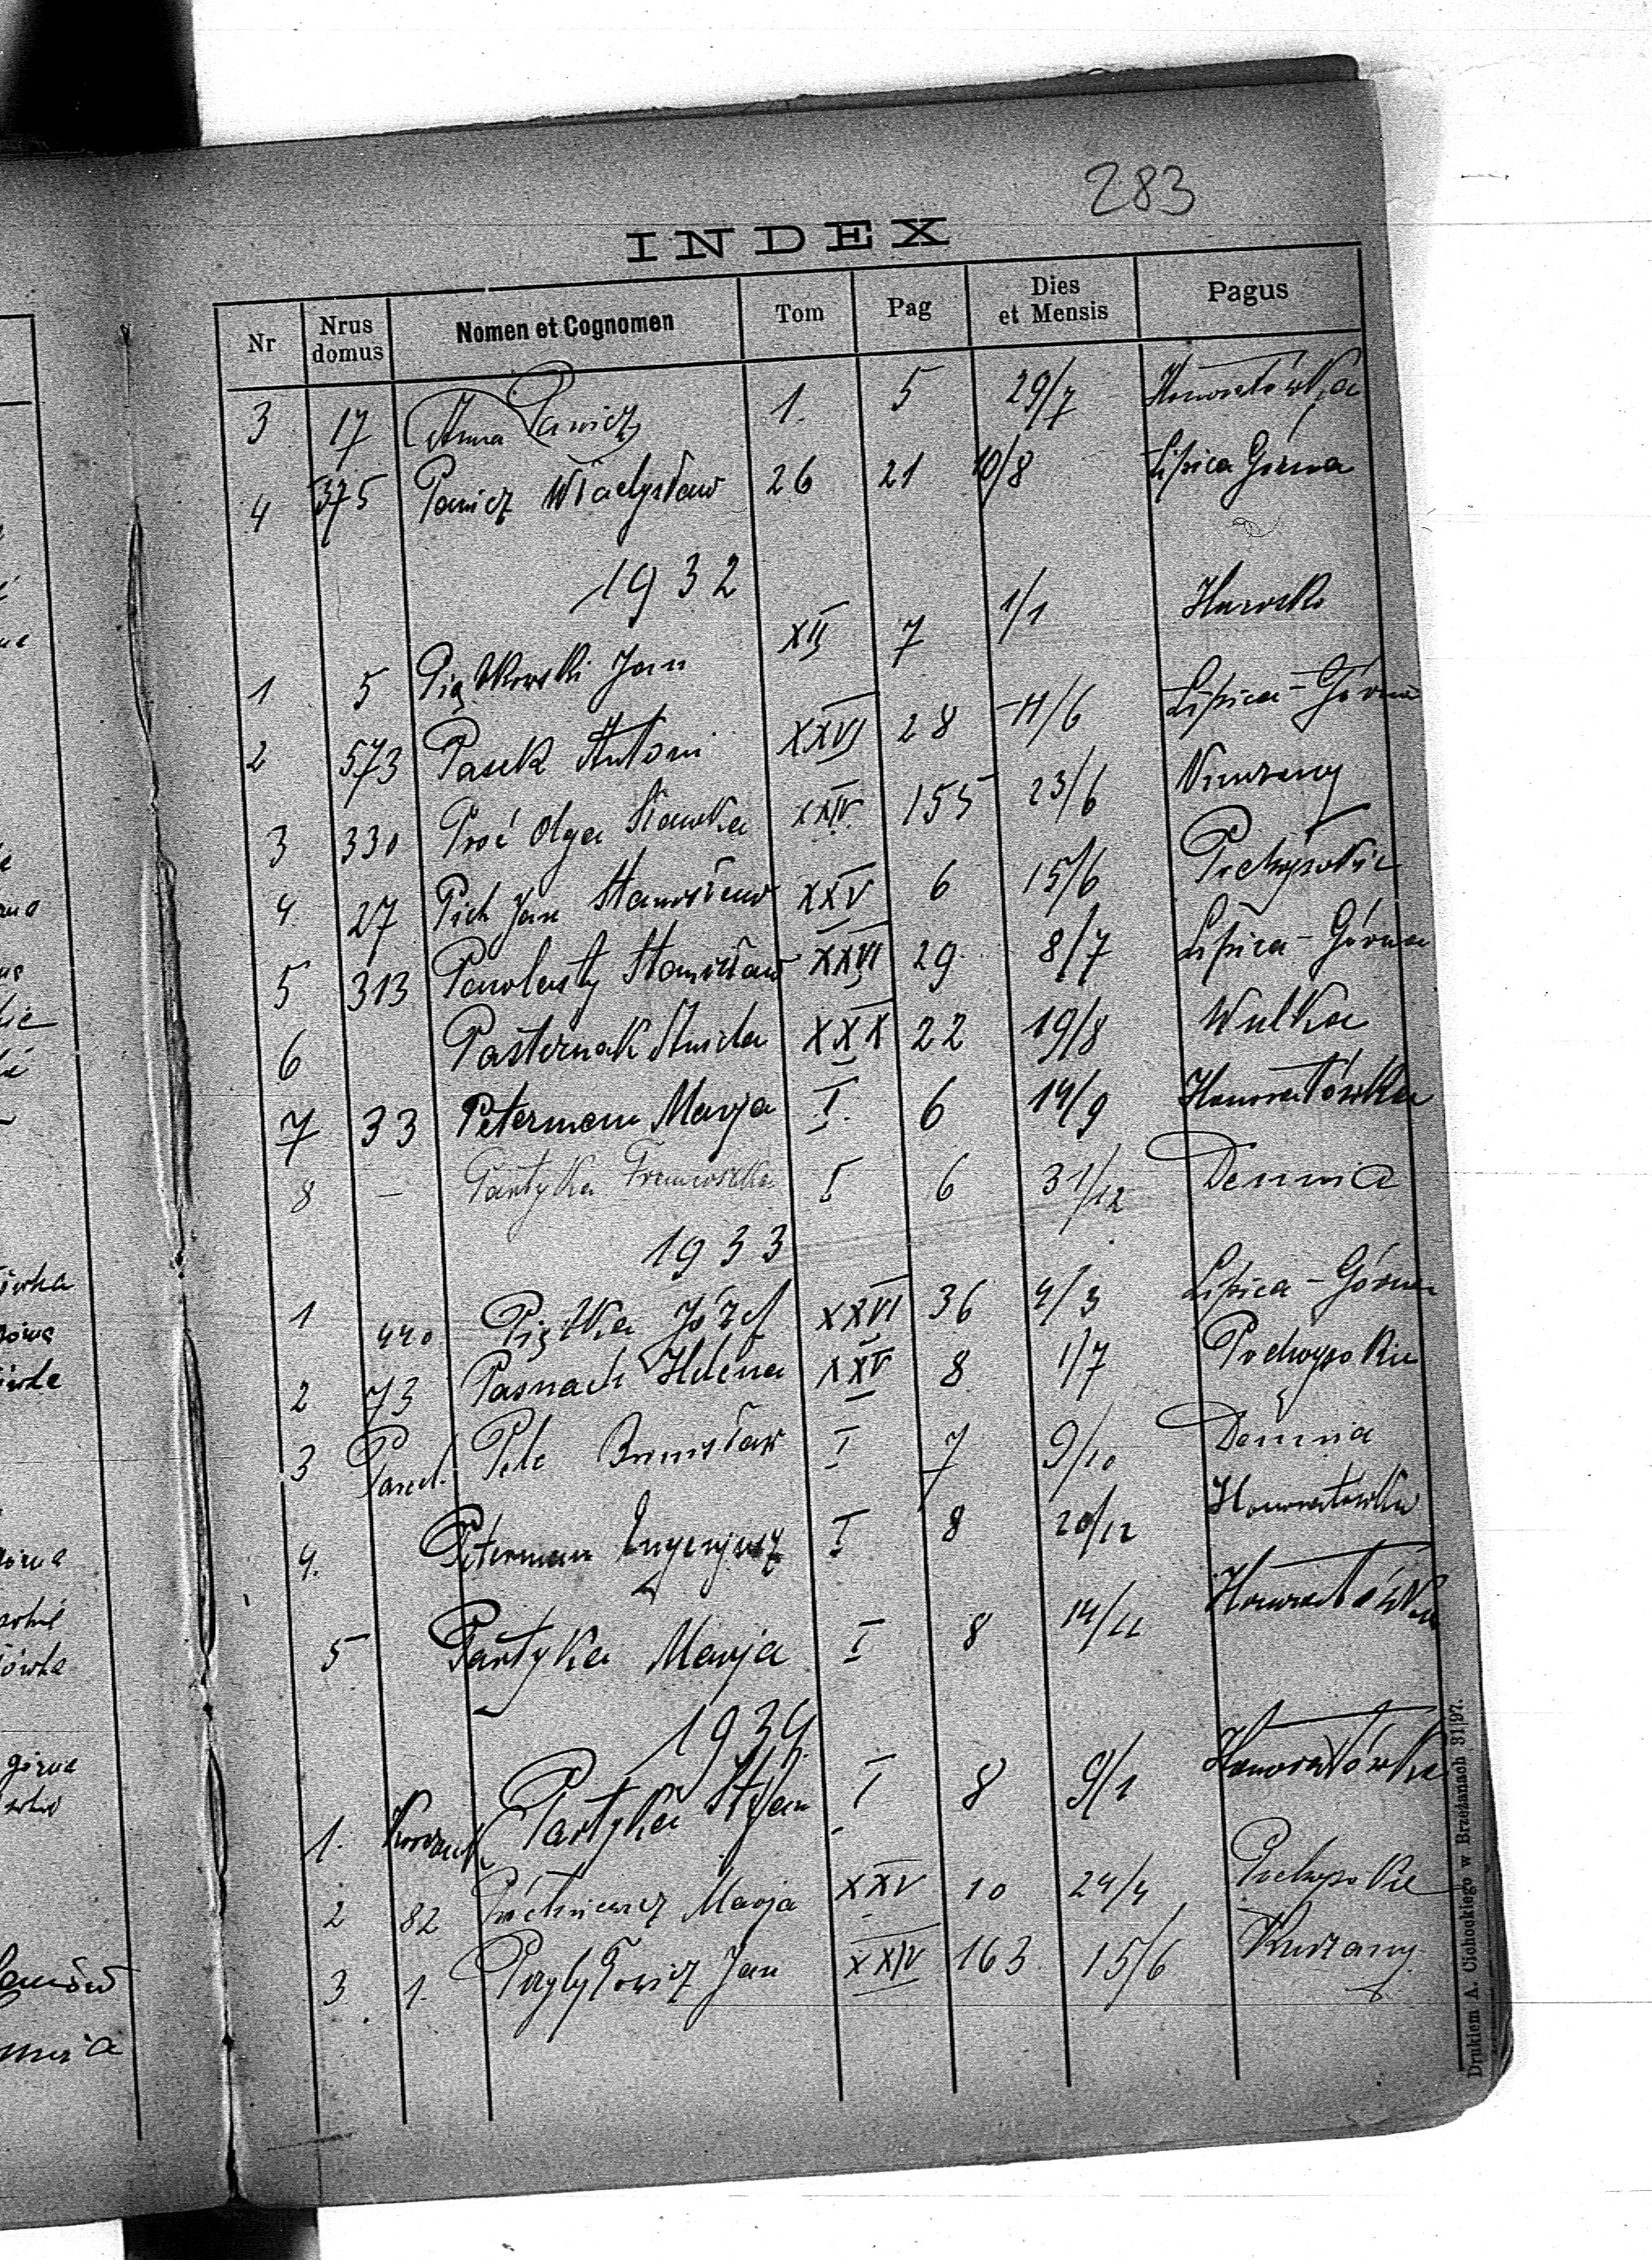 283
INDEX
Nr Nrus domus Nomen et Cognomen Tom Pag Dies et Mensis Pagus
3 17 Anna Panicz 1. 5 29/7 Honoratówka
4 375 Panicz Władysław 26 21 10/8 Lipica Górna
1932
1 5 Piątkowski Jan XII 7 1/1
2 573 Pasek Antoni XXVI 28 11/6 Lipica-Górna
3 330 Olga XXIV 155 23/6
4 27 Pich Jan Stanisław XXV 6 15/6 Podwysokie
5 313 Stanisław XXVI 29 8/7 Lipica-Górna
6 Pasternak XXX 22 19/8 Wulka
7 33 Peterman Marja I. 6 14/9 Honoratówka
8 — Partyka Franciszka I 6 31/12 Demnia
1933
1 440 Piątka Józef XXVI 36 4/3 Lipica-Górna
2 73 Pasnach Helena XXV 8 1/7 Podwysokie
3 Parcel. Pelc Bronisław I 7 9/10 Demnia
4. Peterman Eugenjusz I 8 20/12 Honoratówka
5 Partyka Marja I 8 14/11 Honoratówka
1934
1. Partyka Stefan I 8 9/1 Honoratówka
2 82 Marja XXV 10 24/4 Podwysokie
3 1. Przybyłowicz Jan XXIV 163 15/6 Kurzany
Drukiem A. Cichockiego w Brzeżanach 31|97.